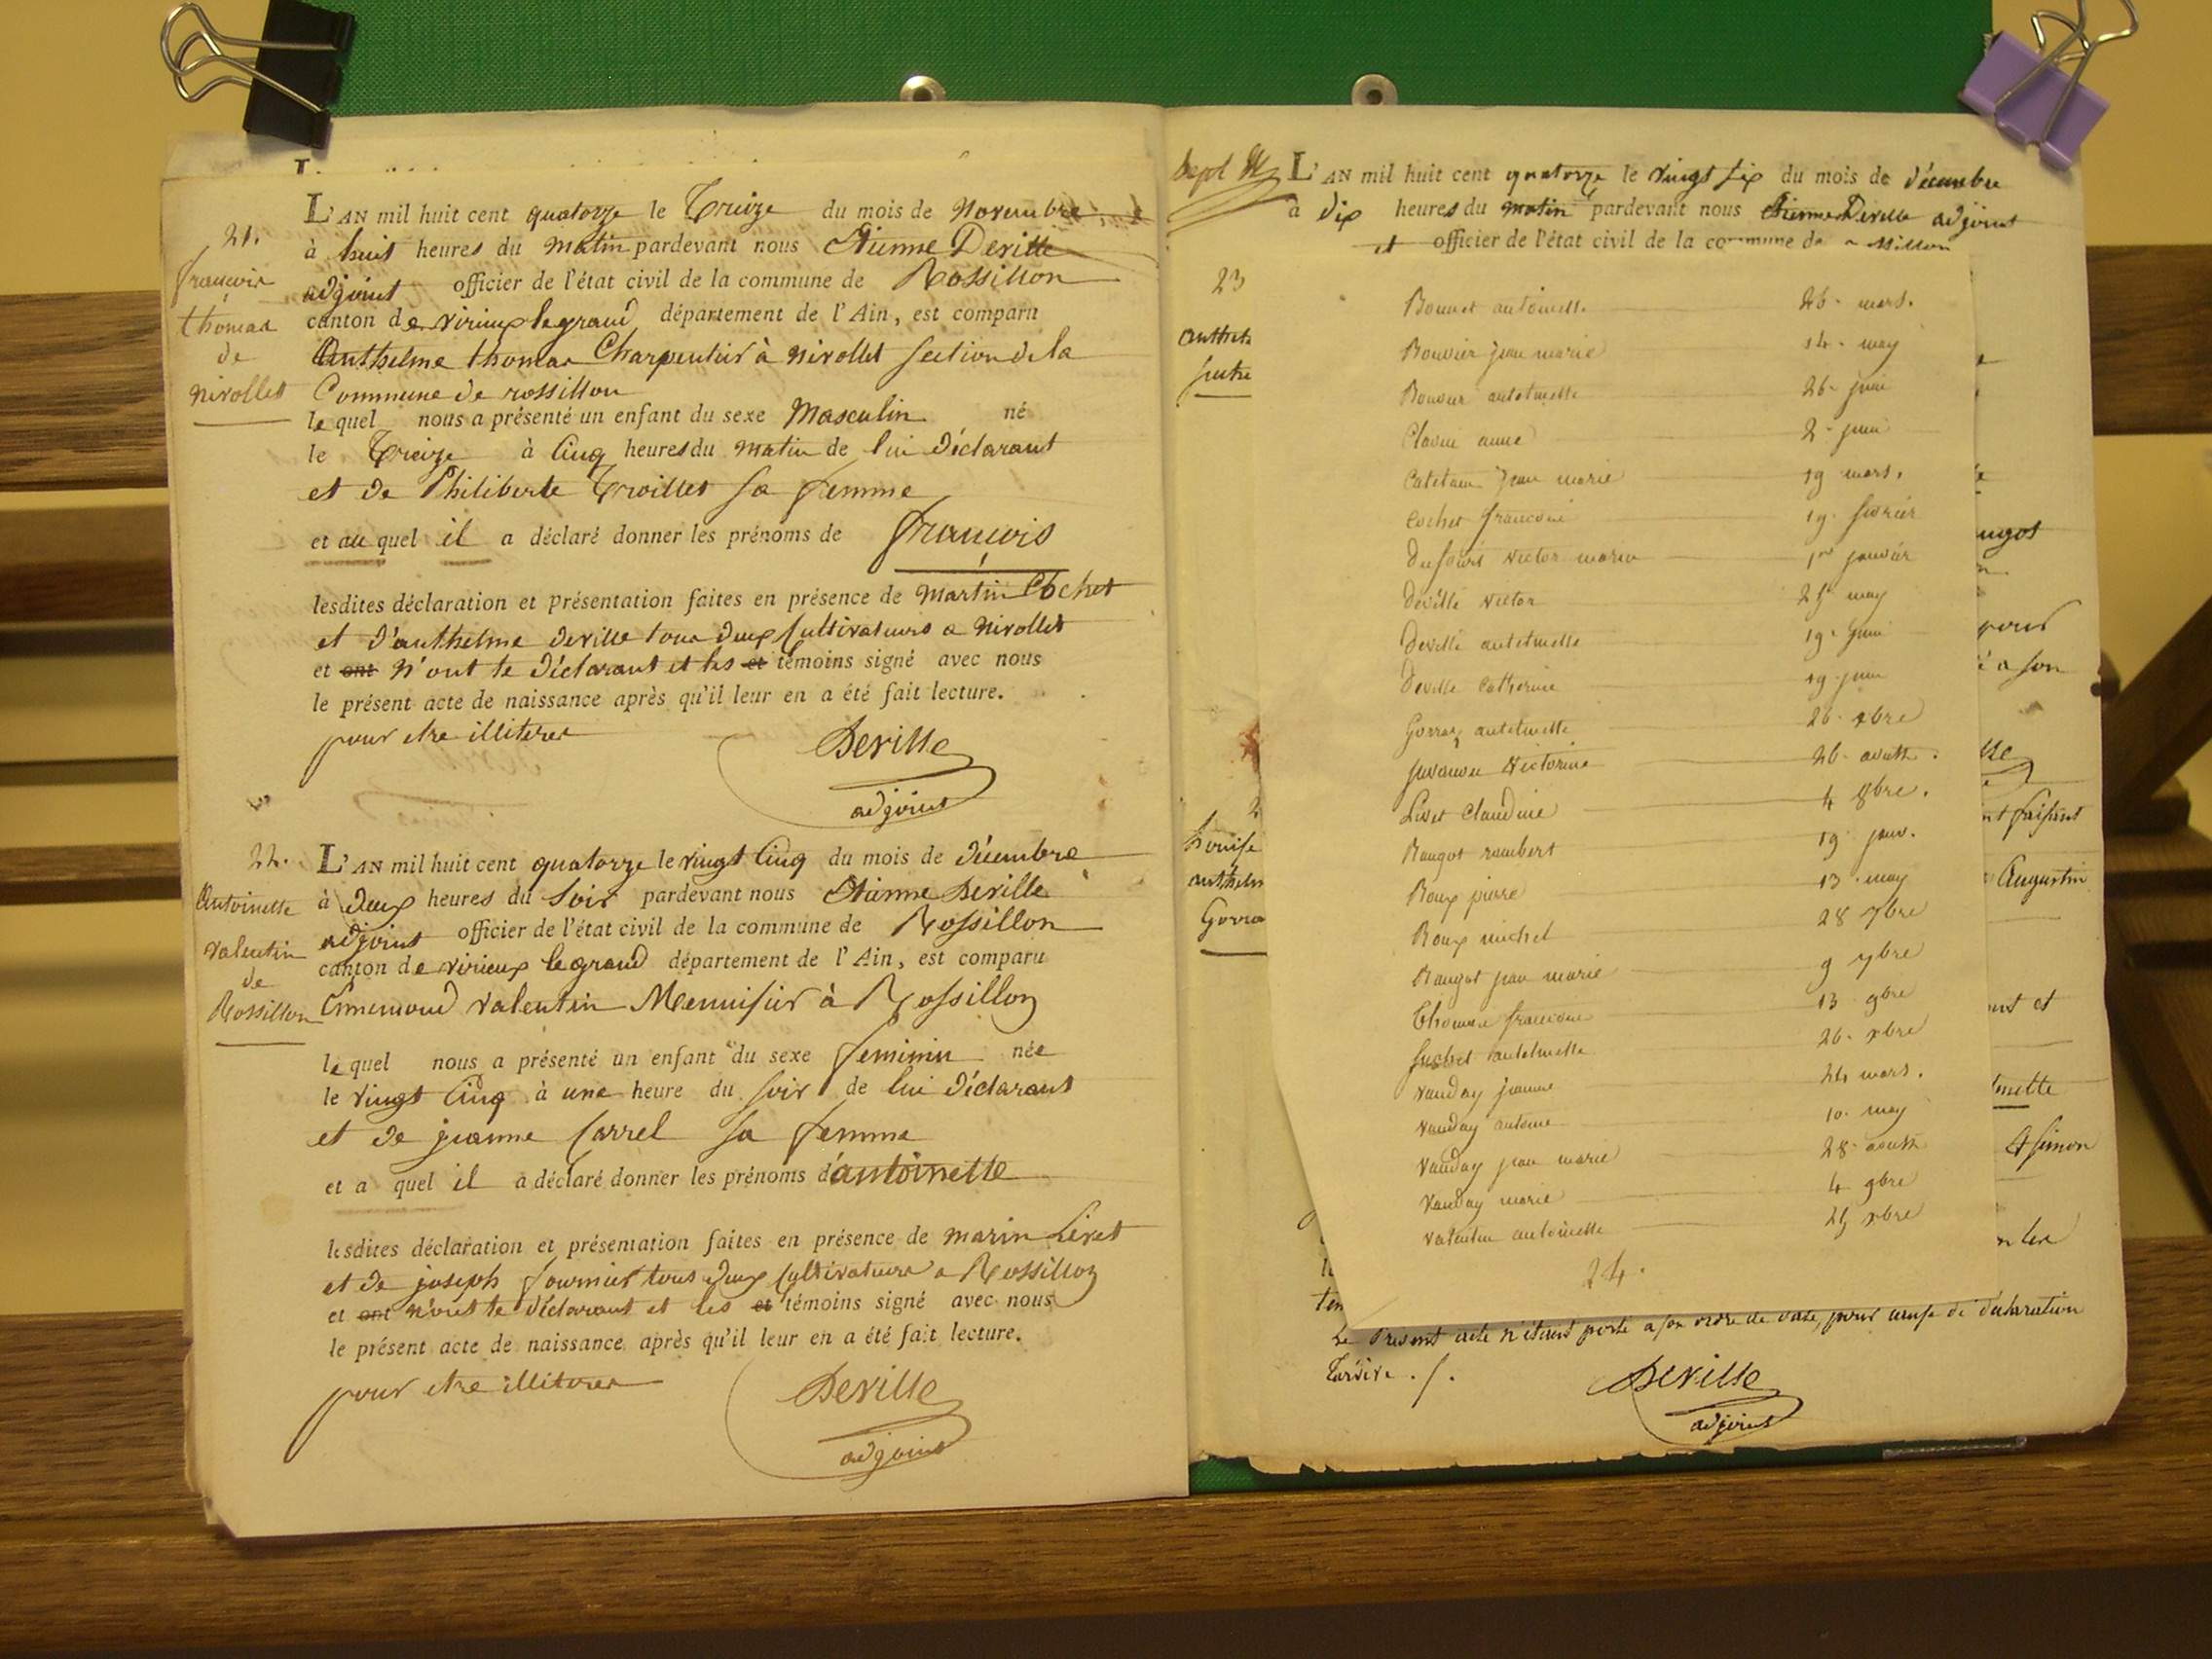 21.
françois
thomas
de
nivollet
L'AN mil huit cent quatorze le Treize du mois de Novembre
à huit heures du matin pardevant nous Etienne Deville
adjoint officier de l'état civil de la commune de Rossillon
canton de virieux legrand département de l'Ain, est comparu
Anthelme thomas Charpentier à nivollet section de la
Commune de rossillon
le quel nous a présenté un enfant du sexe Masculin né
le Treize à Cinq heures du matin de lui déclarant
et de Philiberte Troillet sa femme
et au quel il a déclaré donner les prénoms de françois
lesdites déclaration et présentation faites en présence de Martin Cochet
et d'anthelme deville tous deux Cultivateurs a nivollet
et ont n'ont le déclarant et les et témoins signé avec nous
le présent acte de naissance après qu'il leur en a été fait lecture.
pour etre illiterés
Deville
adjoint
22.
Antoinette
valentin
de
Rossillon
L'AN mil huit cent quatorze le vingt Cinq du mois de décembre
à deux heures du Soir pardevant nous Etienne Deville
adjoint officier de l'état civil de la commune de Rossillon
canton de virieux legrand département de l'Ain, est comparu
valentin Menuisier à Rossillon
le quel nous a présenté un enfant du sexe feminin née
le vingt Cinq à une heure du soir de lui déclarant
et de jeanne Carrel sa femme
et a quel il a déclaré donner les prénoms d'antoinette
lesdites déclaration et présentation faites en présence de marin Livet
et de joseph fournier tous deux Cultivateurs a Rossillon
et ont n'ont le déclarant et les et témoins signé avec nous
le présent acte de naissance après qu'il leur en a été fait lecture.
pour etre illiterés
Deville
adjoint
L'AN mil huit cent quatorze le vingt six du mois de décembre
à dix heures du matin pardevant nous Etienne Deville adjoint
et officier de l'état civil de la commune de
23
Bonnet antoinette 26. mars.
Bouvier jean marie 14. may
Bouvier antelmette 26. juin
anne 2. juin
jean marie 19 mars.
Cochet francoise 19. fevrier
victor marie 1er janvier
Deville victor may
Deville antelmette 19. juin
Deville Catherine 19 juin
Gorraz antelmette 26. xbre
victorine 26. aoust.
Livet Claudine 4 8bre.
Baugot rambert 19 janv.
Roux pierre 13. may
Roux michel 28 7bre
Baugot jean marie 9 7bre
Thomas francois 13 9bre
antelmette 26. xbre
vauday jeanne 24 mars.
vauday antoine 10. may
vauday jean marie 28. aoust
vauday marie 4 9bre
valentin antoinette 25 xbre
24.
Augustin
& simon
Le Present acte n'étant porté a son ordre de date, pour cause de déclaration
Tardive ./.
Deville
adjoint